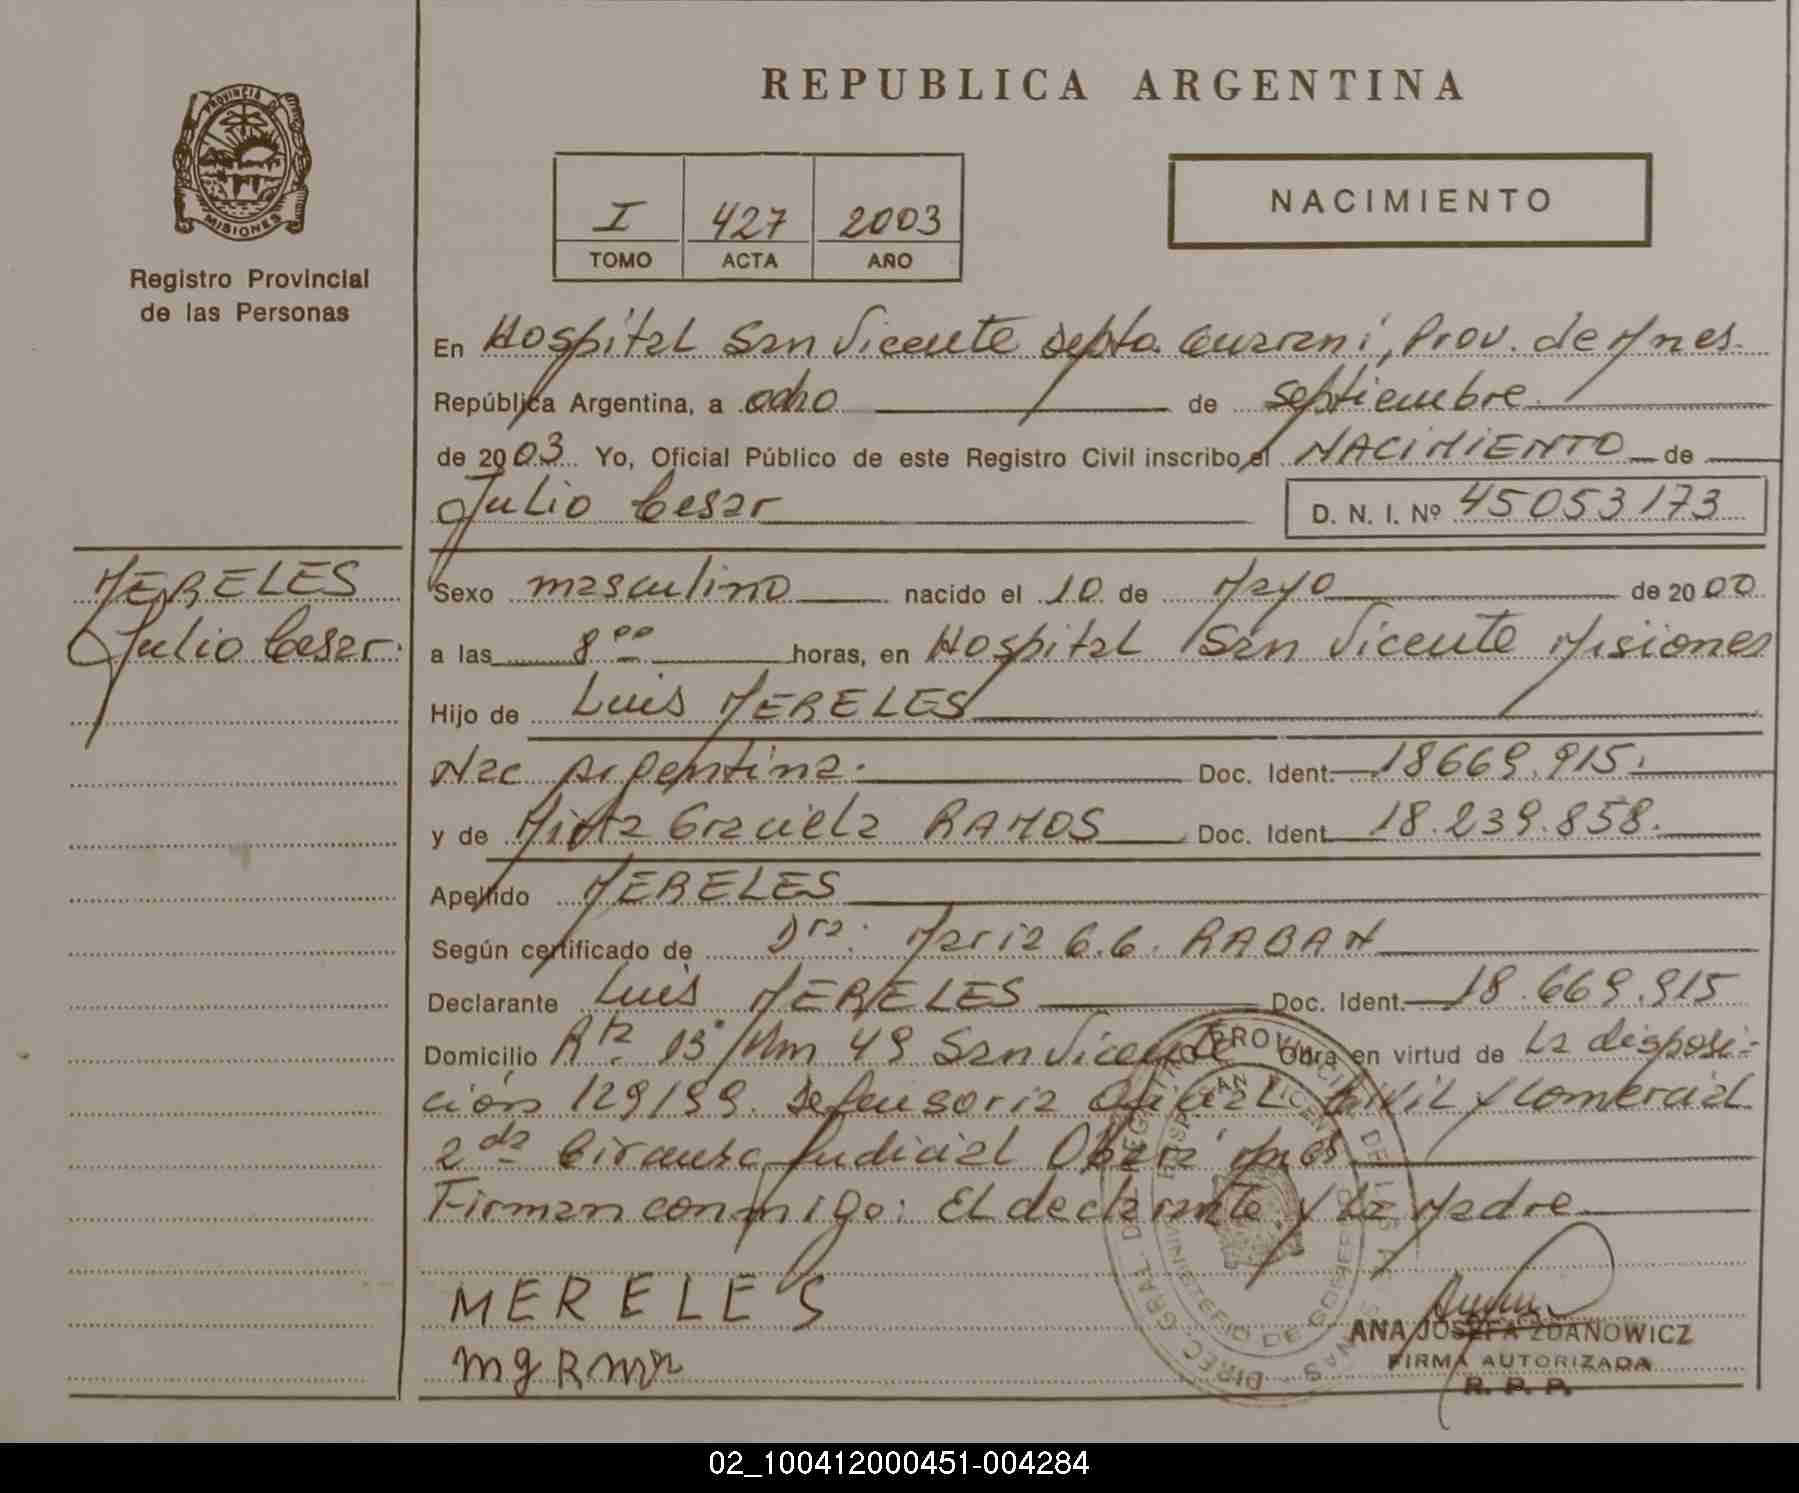 REPUBLICA ARGENTINA
PROVINCIA D
MISIONES
Registro Provincial
de las Personas
I 427 2003
TOMO ACTA AÑO
NACIMIENTO
En Hospital San Vicente Depto. Guarani, Prov. de Mnes.
República Argentina, a ocho de septiembre
de 2003 Yo, Oficial Público de este Registro Civil inscribo el NACIMIENTO de
Julio Cesar
D. N. I. Nº 45053173
MERELES
Julio Cesar
Sexo masculino nacido el 10 de Mayo de 2000
a las 8 00 horas, en Hospital San Vicente Misiones
Hijo de Luis MERELES
Nac Argentina. Doc. Ident. 18669.915.
y de Mirta Graciela RAMOS Doc. Ident. 18.239.858.
Apellido MERELES
Según certificado de Dra. Maria G.G. RABAN
Declarante Luis MERELES Doc. Ident. 18.669.915
Domicilio Rta. 13 Km 49 San Vicente Obra en virtud de La disposi-
ción 129/99. Defensoria Oficial Civil y Comercial
2da Circunsc Judicial Oberá Mnes
Firman conmigo: El declarante y La Madre
MERELES
ANA JOSEFA ZDANOWICZ
FIRMA AUTORIZADA
R. P. P.
DIREC. GRAL. DEL REGISTRO PROVINCIAL DE LAS PERSONAS
HOSP. SAN VICENTE
MINISTERIO DE GOBIERNO
02_100412000451-004284